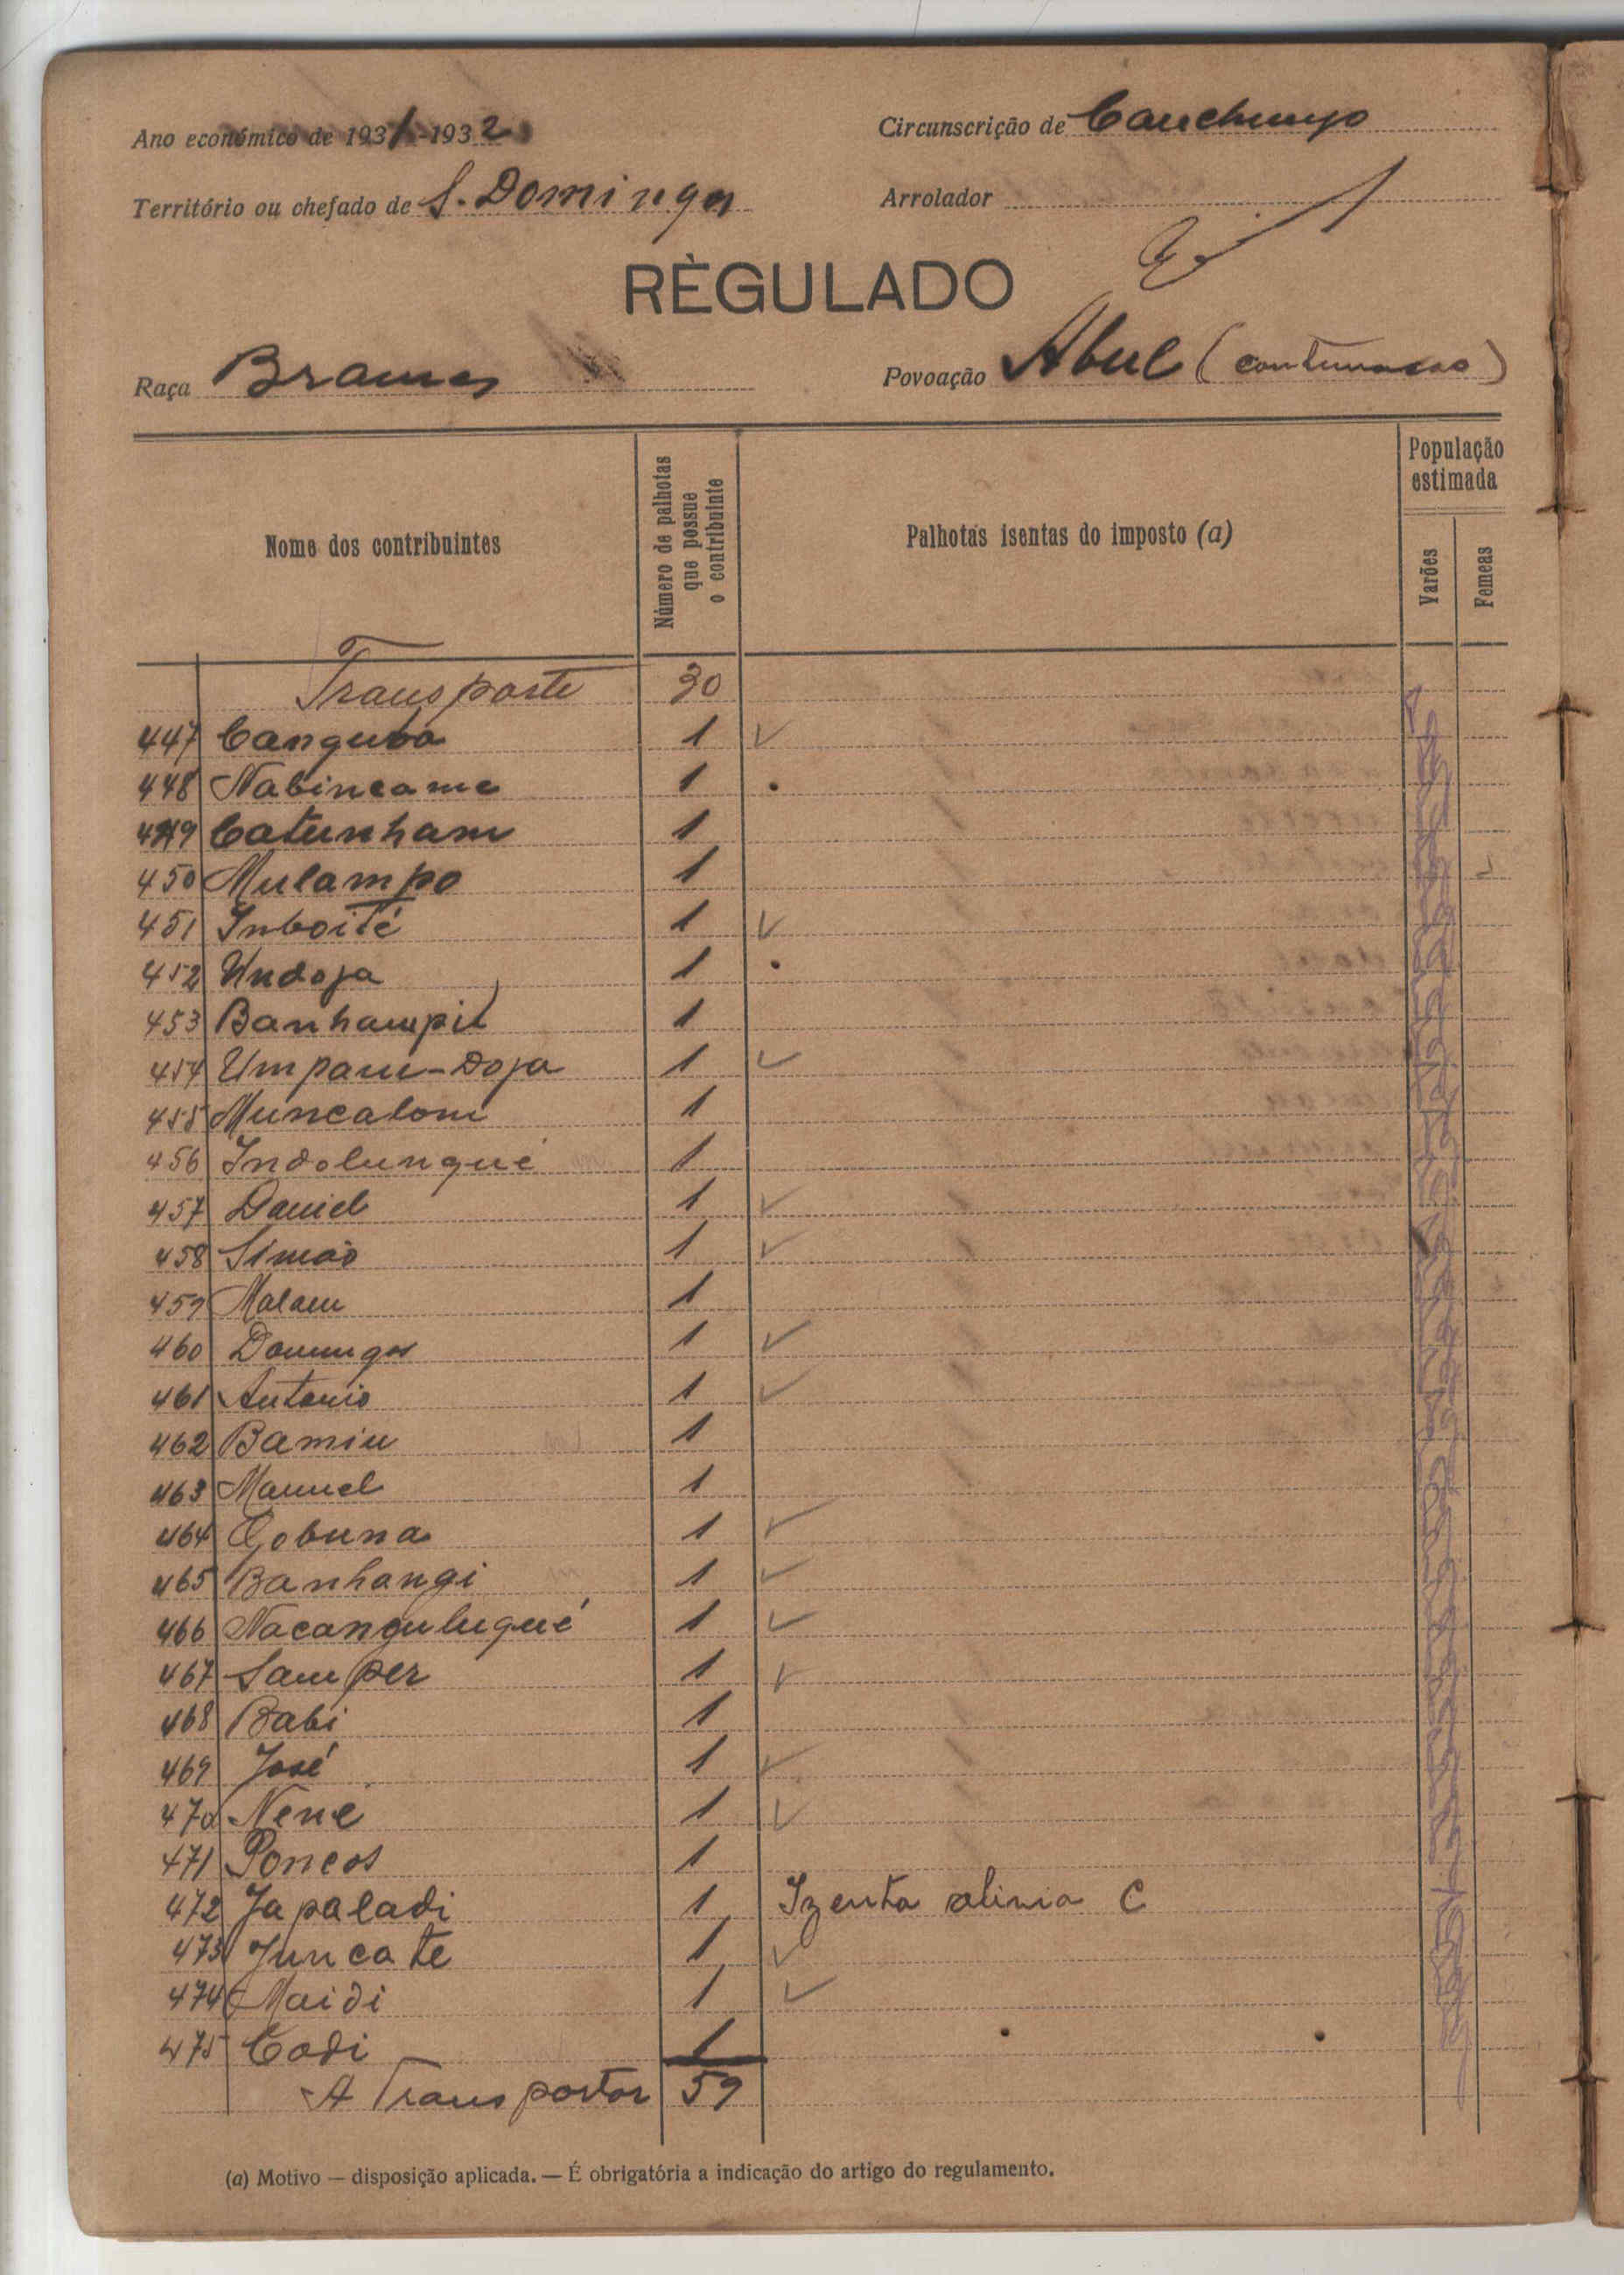 Ano económico de 1931-1932
Circunscrição de Canchungo
Território ou chefado de S. Domingos
Arrolador
RÈGULADO
Raça Brames
Povoação Abul (continuacao)
Nome dos contribuintes
Número de palhotas que possue o contribuinte
Palhotas isentas do imposto (a)
População estimada
Varões
Femeas
Transporte 30
447 Canguba 1 ✓
448 Nabincame 1 .
449 Catunham 1
450 Mulampo 1
451 Inboité 1 ✓
452 Undoja 1 .
453 Banhampil 1
454 Umpam-Doja 1 ✓
455 Muncalom 1
456 Indolunqué 1
457 Daniel 1 ✓
458 Simão 1 ✓
459 Malam 1
460 Domingos 1 ✓
461 Antonio 1 ✓
462 Bamiu 1
463 Manuel 1
464 Gobuna 1 ✓
465 Banhangi 1 ✓
466 Nacanguluqué 1 ✓
467 Samper 1 ✓
468 Babi 1
469 José 1 ✓
470 Nené 1 ✓
471 Poncos 1
472 Japaladi 1 Izenta alinia C
473 Juncate 1 ✓
474 Maidi 1 ✓
475 Codi 1
A Transportar 59
(a) Motivo — disposição aplicada. — É obrigatória a indicação do artigo do regulamento.